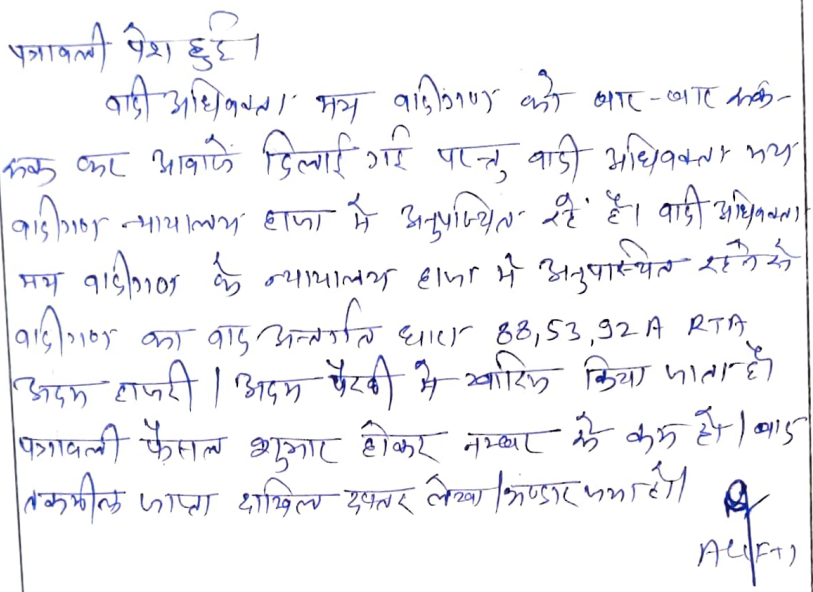 पत्रावली पेश हुई।
वादी अधिवक्ता मय वादीगण को बार-बार रूक-
रूक कर आवाजें दिलाई गई परन्तु वादी अधिवक्ता मय
वादीगण न्यायालय हाजा में अनुपस्थित रहें है। वादी अधिवक्ता
मय वादीगण के न्यायालय हाजा में अनुपस्थित रहने से
वादीगण का वाद अन्तर्गत धारा 88,53,92A RTA
अदम हाजरी / अदम पैरवी में खारिज किया जाता है।
पत्रावली फैसल शुमार होकर नम्बर से कम हो। बाद
तकमील जाप्ता दाखिल दफ्तर लेखा/भण्डार जमा हो।